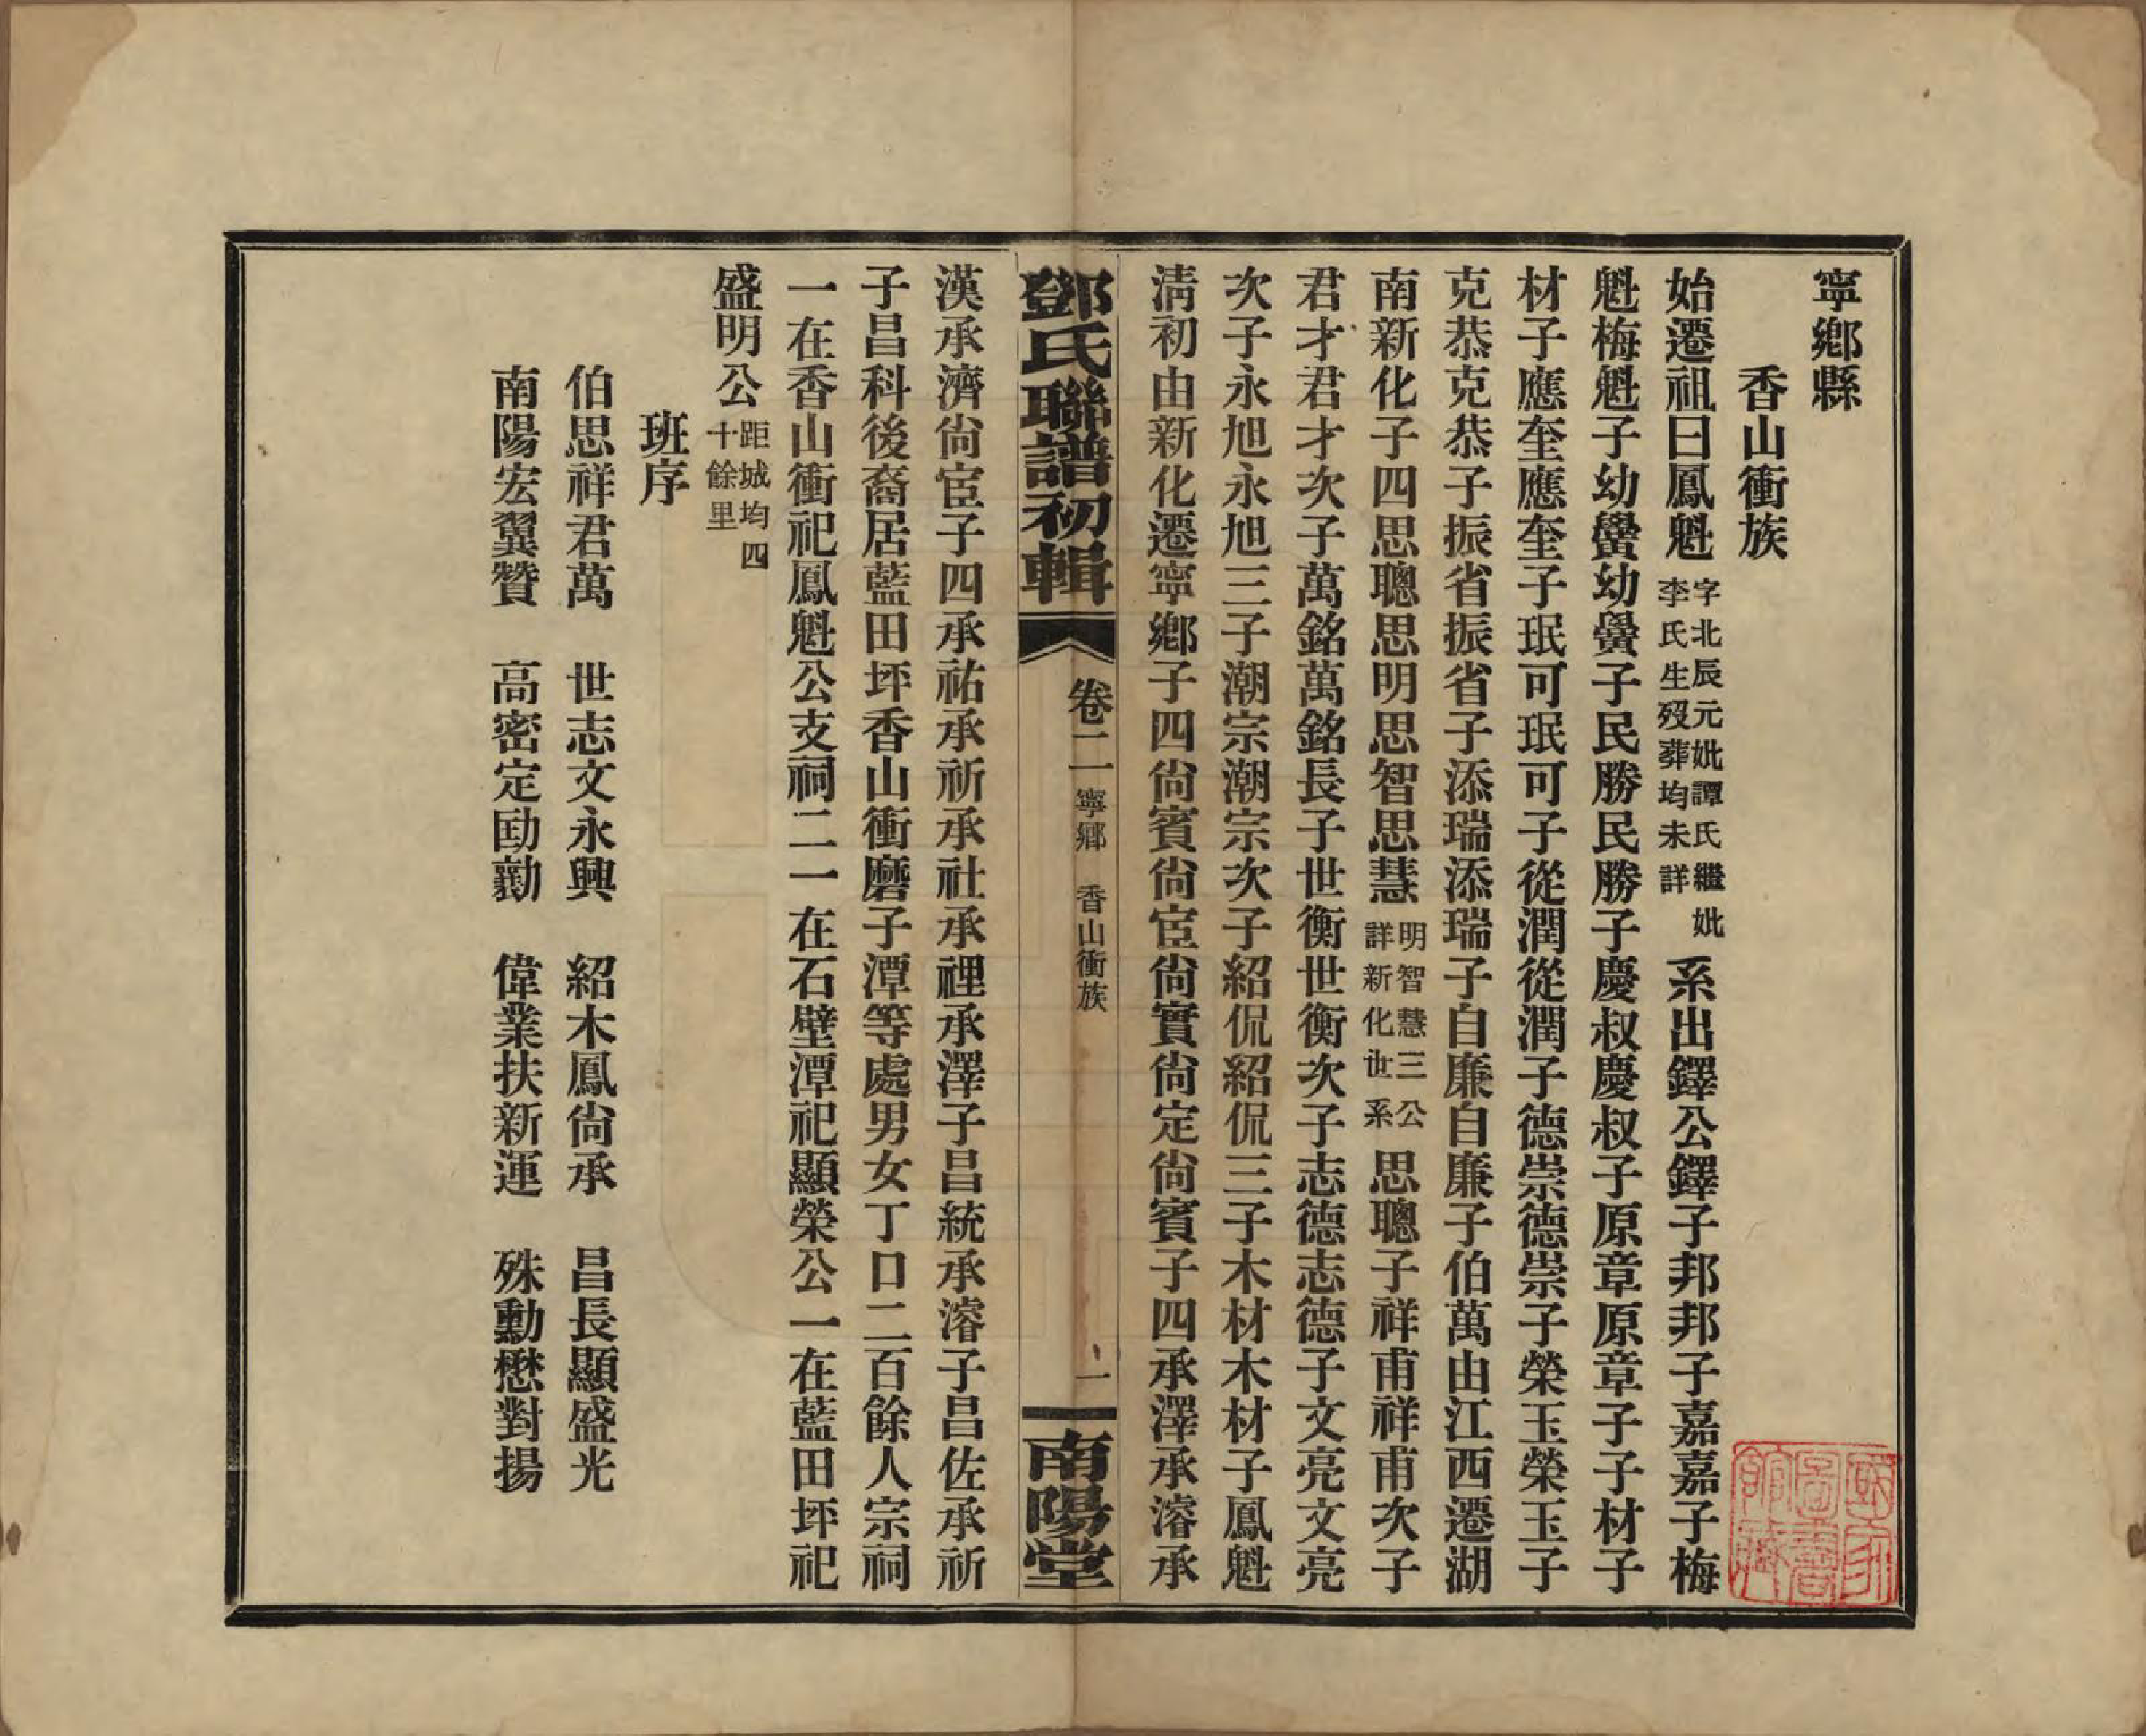 寧鄉縣
香山衝族
始遷祖曰鳳魁字北辰元妣譚氏繼妣李氏生歿葬均未詳系出鐸公鐸子邦邦子嘉嘉子梅
魁梅魁子幼鸞幼鸞子民勝民勝子慶叔慶叔子原章原章子子材子
材子應奎應奎子珉可珉可子從潤從潤子德崇德崇子榮玉榮玉子
克恭克恭子振省振省子添瑞添瑞子自廉自廉子伯萬由江西遷湖
南新化子四思聰思明思智思慧明智慧三公詳新化世系思聰子祥甫祥甫次子
君才君才次子萬銘萬銘長子世衡世衡次子志德志德子文亮文亮
次子永旭永旭三子潮宗潮宗次子紹侃紹侃三子木材木材子鳳魁
淸初由新化遷寧鄉子四尙賓尙宦尙實尙定尙賓子四承澤承濬承
鄧氏聯譜初輯
卷二
寧鄉 香山衝族
一
南陽堂
漢承濟尙宦子四承祐承祈承社承裡承澤子昌統承濬子昌佐承祈
子昌科後裔居藍田坪香山衝磨子潭等處男女丁口二百餘人宗祠
一在香山衝祀鳳魁公支祠二一在石壁潭祀顯榮公一在藍田坪祀
盛明公距城均四十餘里
班序
伯思祥君萬 世志文永興 紹木鳳尙承 昌長顯盛光
南陽宏翼贊 高密定勛勷 偉業扶新運 殊勳懋對揚